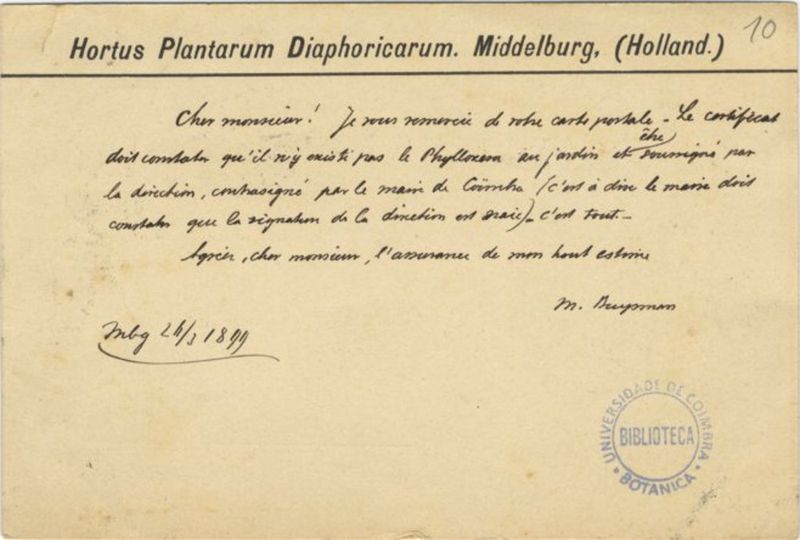 10
Hortus Plantarum Diaphoricarum. Middelburg, (Holland.)
Cher monsieur! Je vous remercie de votre carte postale - Le certificat
doit constater qu'il n'y existe pas le Phylloxera au jardin et être soussigné par
la direction, contrasigné par le maire de Coïmbra (c'est à dire le maire doit
constater que la signation de la direction est vraie) - c'est tout -
Agréer, cher monsieur, l'assurance de mon haut estime
M. Buysman
Mbg 24/3 1899
UNIVERSIDADE DE COIMBRA
BIBLIOTECA
BOTANICA